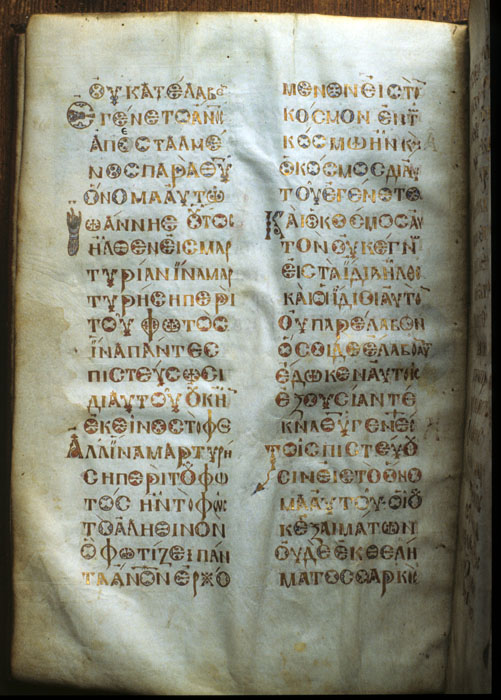 ΟΥ ΚΑΤΕΛΑΒΕ
ΕΓΕΝΕΤΟ ΑΝΟϹ
ΑΠΕϹΤΑΛΜΕ
ΝΟϹ ΠΑΡΑ ΘΥ
ΟΝΟΜΑ ΑΥΤΩ
ΙΩΑΝΝΗϹ ΟΥΤΟϹ
ΗΛΘΕΝ ΕΙϹ ΜΑΡ
ΤΥΡΙΑΝ ΙΝΑ ΜΑΡ
ΤΥΡΗϹΗ ΠΕΡΙ
ΤΟΥ ΦΩΤΟϹ
ΙΝΑ ΠΑΝΤΕϹ
ΠΙϹΤΕΥϹΩϹΙ
ΔΙ ΑΥΤΟΥ ΟΥΚ ΗΝ
ΕΚΕΙΝΟϹ ΤΟ ΦΩϹ
ΑΛΛ ΙΝΑ ΜΑΡΤΥΡΗ
ϹΗ ΠΕΡΙ ΤΟΥ ΦΩ
ΤΟϹ ΗΝ ΤΟ ΦΩϹ
ΤΟ ΑΛΗΘΙΝΟΝ
Ο ΦΩΤΙΖΕΙ ΠΑΝ
ΤΑ ΑΝΟΝ ΕΡΧΟ
ΜΕΝΟΝ ΕΙϹ ΤΟΝ
ΚΟϹΜΟΝ ΕΝ ΤΩ
ΚΟϹΜΩ ΗΝ ΚΑΙ
Ο ΚΟϹΜΟϹ ΔΙ ΑΥ
ΤΟΥ ΕΓΕΝΕΤΟ
ΚΑΙ Ο ΚΟϹΜΟϹ ΑΥ
ΤΟΝ ΟΥΚ ΕΓΝΩ
ΕΙϹ ΤΑ ΙΔΙΑ ΗΛΘΕ
ΚΑΙ ΟΙ ΙΔΙΟΙ ΑΥΤΟΝ
ΟΥ ΠΑΡΕΛΑΒΟΝ
ΟϹΟΙ ΔΕ ΕΛΑΒΟΝ ΑΥΤΟΝ
ΕΔΩΚΕΝ ΑΥΤΟΙϹ
ΕΞΟΥϹΙΑΝ ΤΕ
ΚΝΑ ΘΥ ΓΕΝΕϹΘΑΙ
ΤΟΙϹ ΠΙϹΤΕΥΟΥ
ϹΙΝ ΕΙϹ ΤΟ ΟΝΟ
ΜΑ ΑΥΤΟΥ· ΟΙ ΟΥ
Κ ΕΞ ΑΙΜΑΤΩΝ
ΟΥΔΕ ΕΚ ΘΕΛΗ
ΜΑΤΟϹ ϹΑΡΚΟϹ